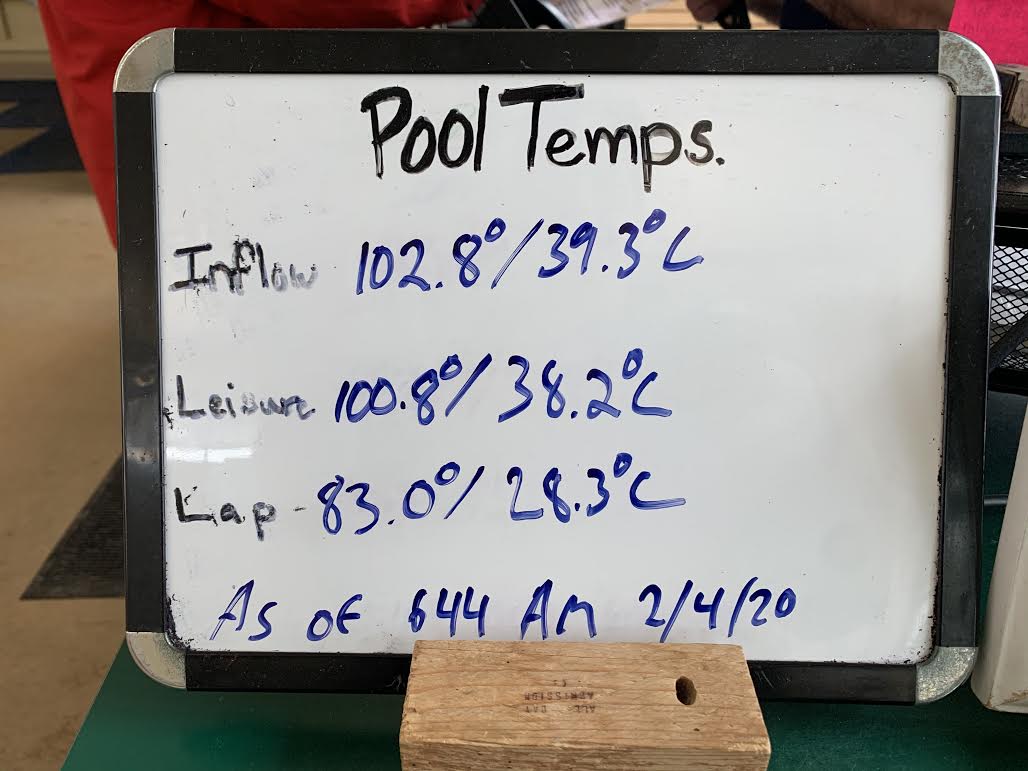 Pool Temps.
Inflow 102.8°/39.3°C
Leisure 100.8°/38.2°C
Lap - 83.0°/28.3°C
As of 644 Am 2/4/20
ALL DAY
ADMISSION